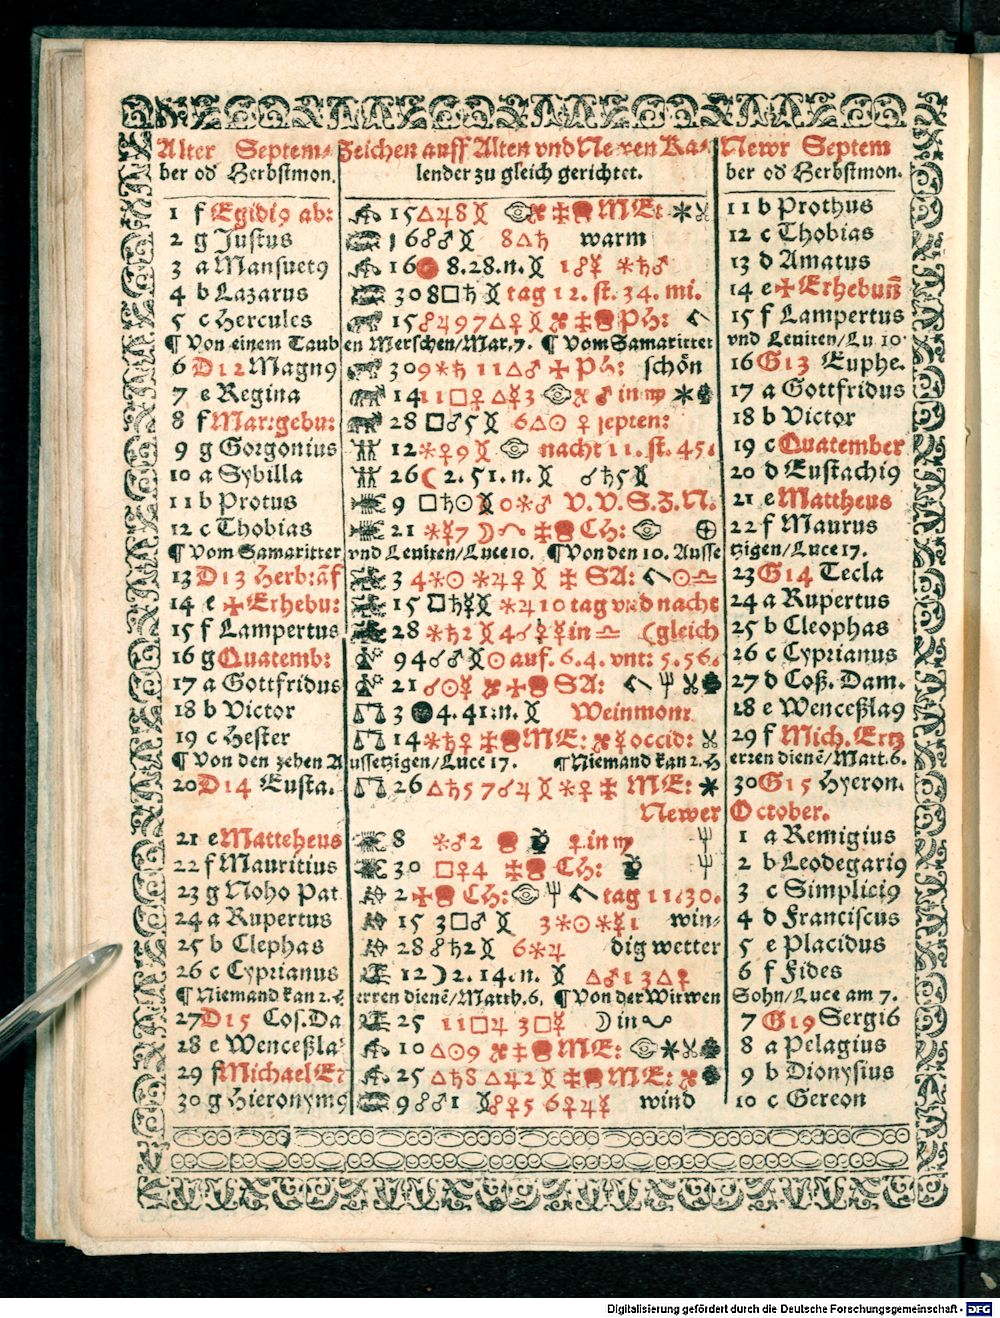 Alter Septem- Zeichen auff Alten vnd Newen Ka- Newr Septem
ber od Herbstmon. lender zu gleich gerichtet. ber od Herbstmon.
1 f Egidi9 ab: 15△♃8 ME: 11 b Prothus
2 g Justus 16☍♂ 8△♄ warm 12 c Thobias
3 a Mansuet9 16 8.28.n. 1☍☿ ✶♄♂ 13 d Amatus
4 b Lazarus 30 8□♄ tag 12. st. 34. mi. 14 e ✠ Erhebun̄
5 c Hercules 15☍♃9 7△♀ Ph: 15 f Lampertus
¶ Von einem Tauben Menschen/Mar.7. ¶ Vom Samaritter vnd Leuiten/Lu 10.
6 D12 Magn9 30 9✶♄ 11△♂ Ph: schön 16 G13 Euphe.
7 e Regina 14 11□♀ △☿3 ♂ in ♍ 17 a Gottfridus
8 f Mar:gebu: 28 □♂5 6△☉ ♀ septen: 18 b Victor
9 g Gorgonius 12✶♀9 nacht 11. st. 45. 19 c Quatember
10 a Sybilla 26☾2.51.n. ☌♄5 20 d Eustachi9
11 b Protus 9 □♄☉ 0✶♂ V.V.S.Z.N. 21 e Mattheus
12 c Thobias 21 ✶☿7 Ch: 22 f Maurus
¶ Vom Samaritter vnd Leuiten/Luce 10. ¶ Von den 10. Aussetzigen/Luce 17.
13 D13 Herb:āf 3 4✶☉ ✶♃♀ SA: ☉♎ 23 G14 Tecla
14 e ✠ Erhebu: 15 □♄☿ ✶♃10 tag vnd nacht 24 a Rupertus
15 f Lampertus 28 ✶♄2 4☌♀☿ in ♎ (gleich 25 b Cleophas
16 g Quatemb: 9 4☌♂ ☉ auf. 6.4. vnt: 5.56. 26 c Cyprianus
17 a Gottfridus 21 ☌☉☿ SA: 27 d Coß. Dam.
18 b Victor 3 4.41.n. Weinmon: 28 e Wenceßla9
19 c Hester 14✶♄♀ ME: ☿ occid: 29 f Mich. Ertz
¶ Von den zehen Aussetzigen/Luce 17. ¶ Niemand kan 2. Herren dienē/Matt.6.
20 D14 Eusta. 26 △♄5 7☌♃ ✶♀ ME: 30 G15 Hyeron.
Newer October.
21 e Mattheus 8 ✶♂2 ♀ in ♍ 1 a Remigius
22 f Mauritius 30 □♀4 Ch: 2 b Leodegari9
23 g Noho Pat 2 Ch: tag 11.30. 3 c Simplici9
24 a Rupertus 15 3□♂ 3✶☉✶☿1 win- 4 d Franciscus
25 b Clephas 28☍♄2 6✶♃ dig wetter 5 e Placidus
26 c Cyprianus 12☽2.14.n. △♂1 3△♀ 6 f Fides
¶ Niemand kan 2. Herren dienē/Matth.6. ¶ Von der Witwen Sohn/Luce am 7.
27 D15 Cos.Da 25 11□♃ 3□☿ ☽ in 7 G19 Sergi6
28 e Wenceßla 10△☉9 ME: 8 a Pelagius
29 f Michael E 25△♄8 △♃2 ME: 9 b Dionysius
30 g Hieronym9 9☍♂1 ☍♀5 6♀♃☿ wind 10 c Gereon
Digitalisierung gefördert durch die Deutsche Forschungsgemeinschaft - DFG